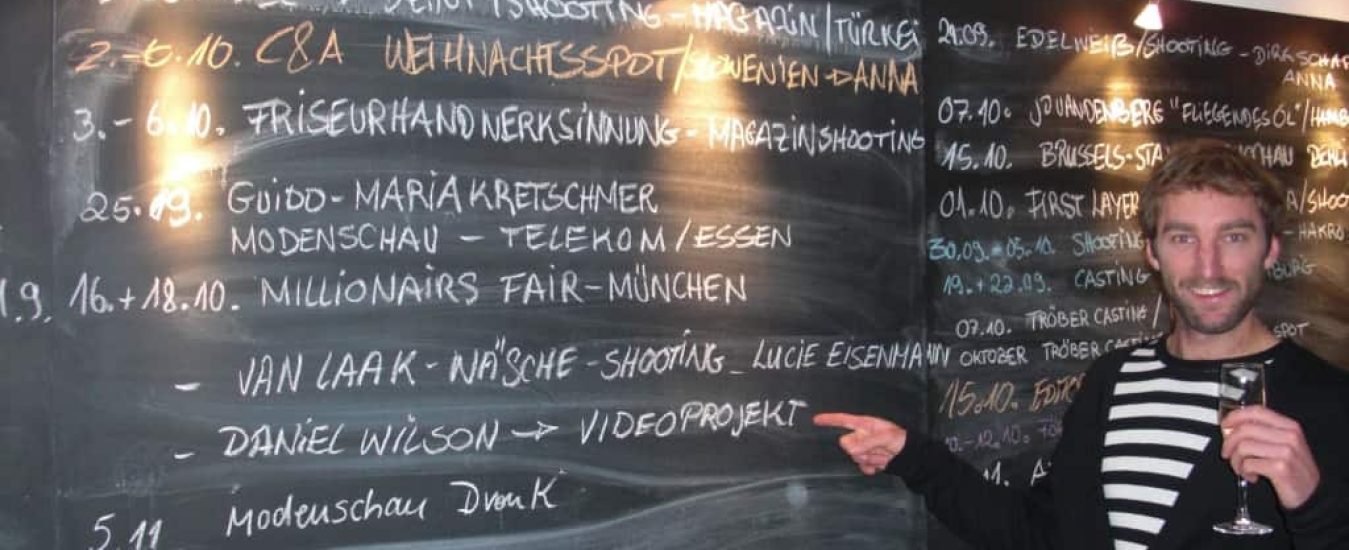 SHOOTING - MAGAZIN/TÜRKEI
2.-6.10. C&A WEIHNACHTSSPOT/ -DANNA
3.- 6.10. FRISEURHANDWERKSINNUNG - MAGAZINSHOOTING
25. 09. GUIDO-MARIA KRETSCHMER
MODENSCHAU - TELEKOM/ESSEN
1.9. 16.+18.10. MILLIONAIRS FAIR-MÜNCHEN
- VAN LAAK-WÄSCHE-SHOOTING_LUCIE EISENMANN
- DANIEL WILSON → VIDEOPROJEKT
5.11 Modenschau
EDELWEIß/SHOOTING -
ANNA
07.10. "FLIEGENDES ÖL"/
15.10. BRUSSELS-
01.10. FIRST LAYER A/SHOO
30.09.-03.10. SHOOTING - HAKRO
19.+22.09. CASTING BURG
07.10. TRÖBER CASTING/ SPOT
OKTOBER TRÖBER
15.10.